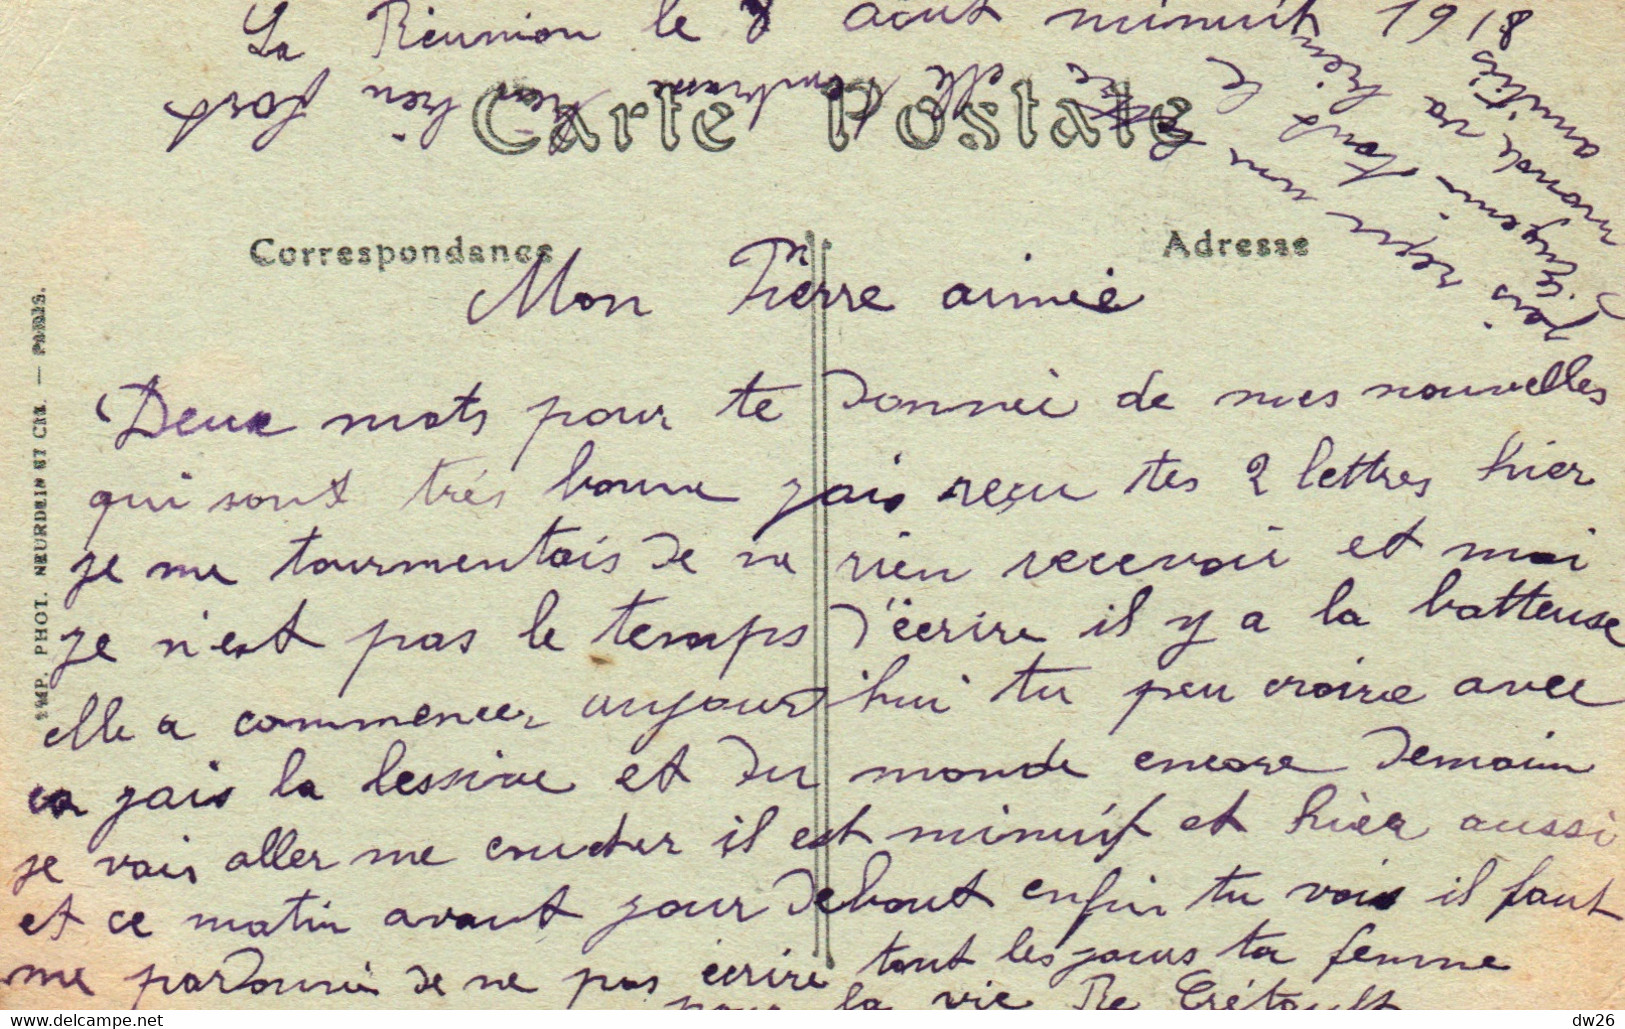 La Réunion le 8 août minuit 1918
Carte Postale
Correspondance
Adresse
Mon Pierre aimée
Deux mots pour te donnée de mes nouvelles
qui sont très bonne j'ais reçu tes 2 lettres hier
je me tourmentais de ne rien recevoir et moi
je n'est pas le temps d'écrire il y a la batteuse
elle a commencer aujourd'hui tu peu croire avec
ça jais la lessive et du monde encore demain
je vais aller me coucher il est minuit et hier aussi
et ce matin avant jour debout enfin tu vois il faut
me pardonnée de ne pas écrire tout les jours ta femme
pour la vie Re Crétault
jais reçu un
Eugenie tout le
monde va bien
amitiés
elle embrasse bien bien fort
IMP. PHOT. NEURDEIN ET CIE. — PARIS.
dw26